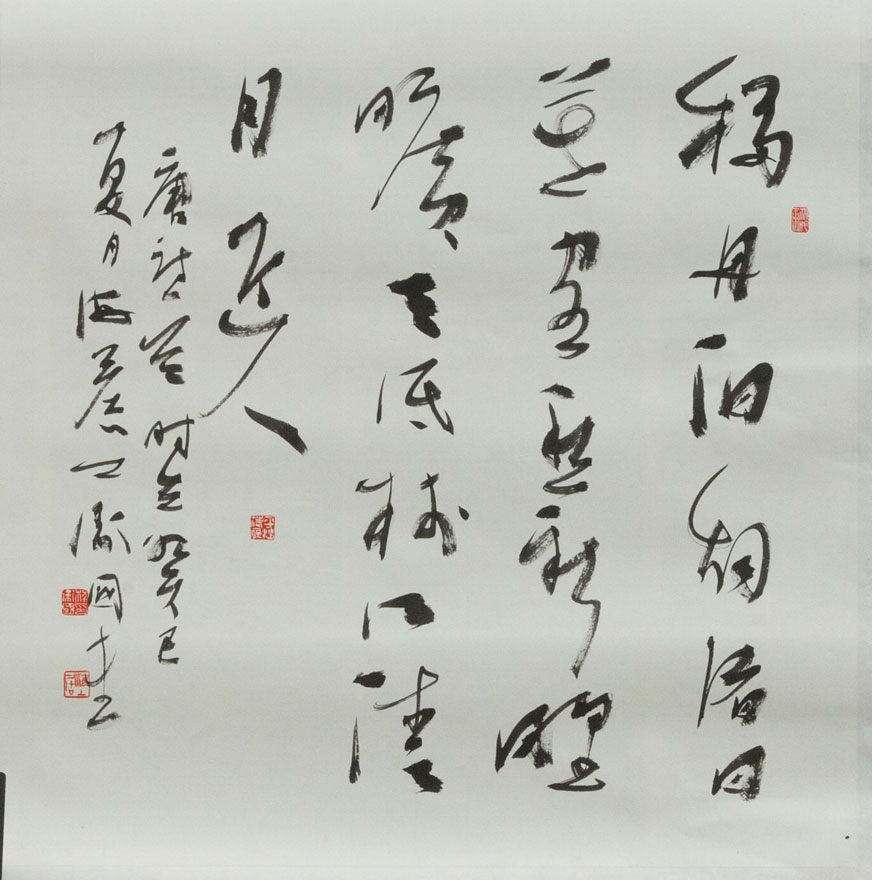 移舟泊烟渚日
暮客愁新野
曠天低树江清
月近人
唐诗一首时在癸巳
夏月海國